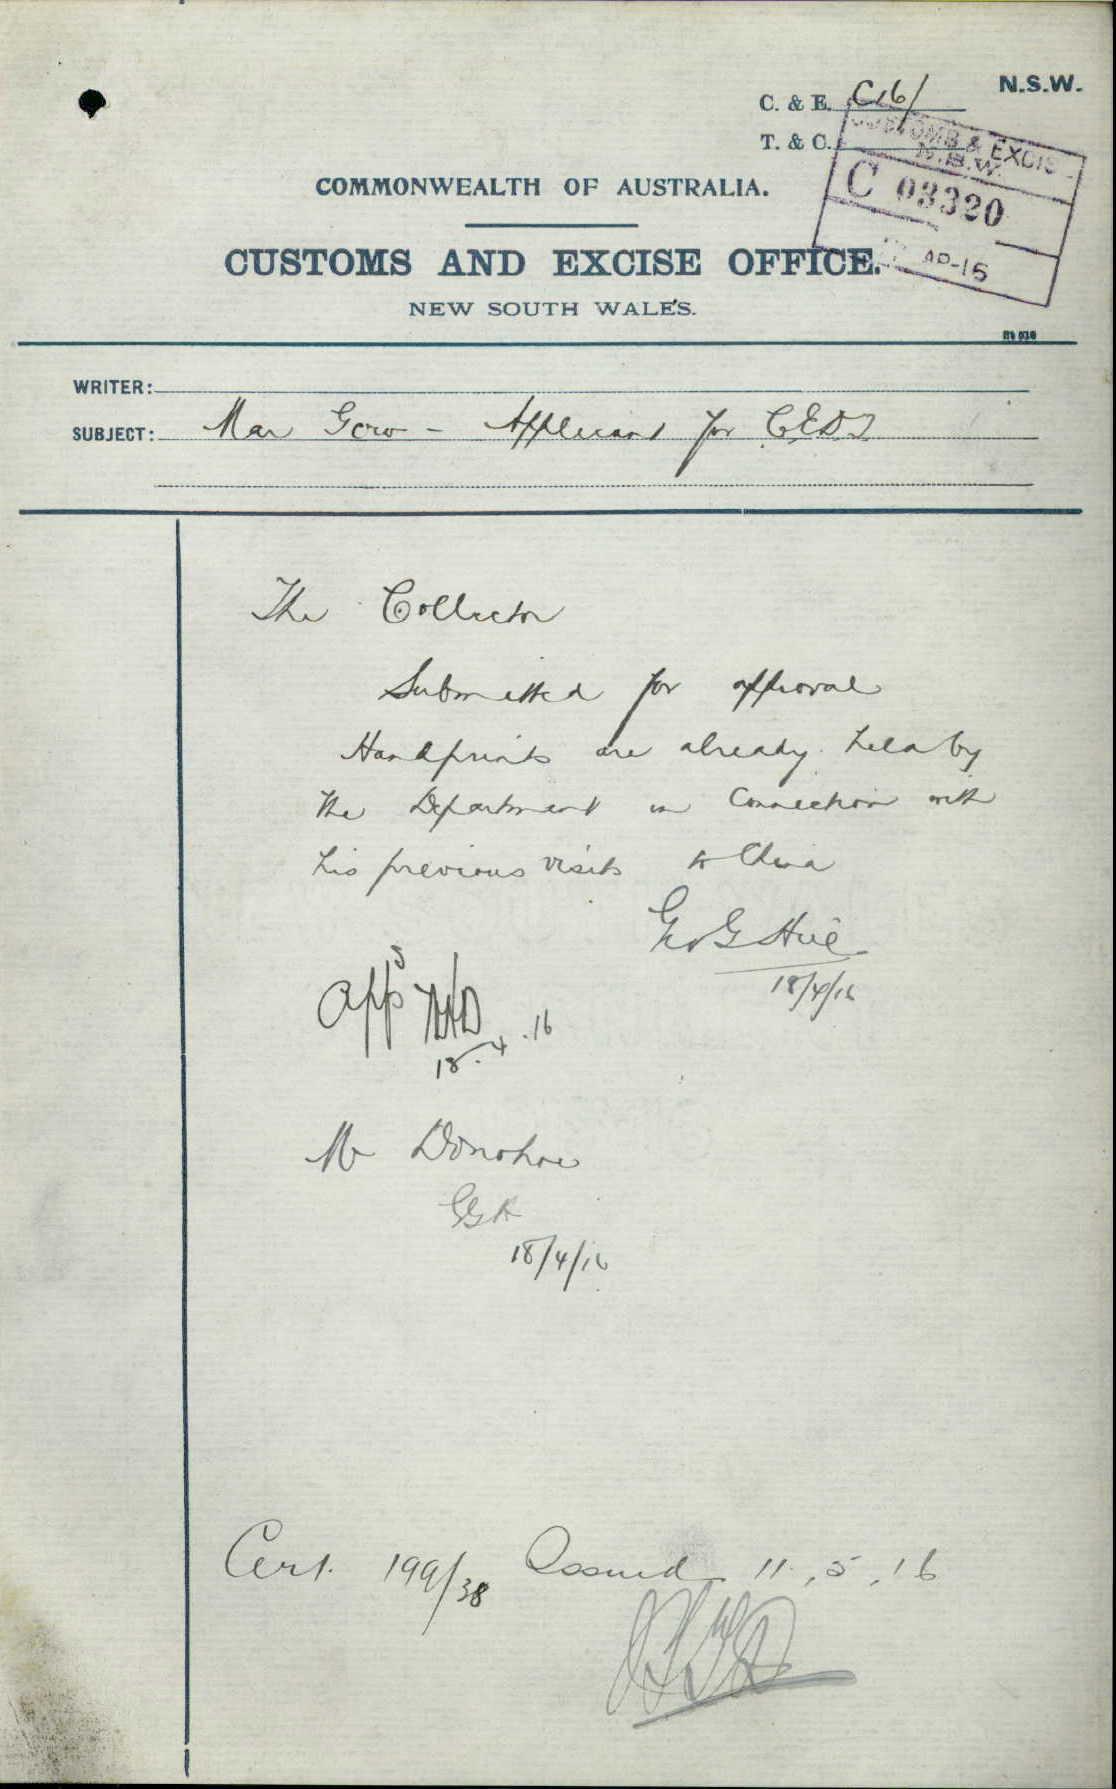 N.S.W.
C. & E. C16/
T. & C.
CUSTOMS & EXCISE
N.S.W.
C 03320
AP-16
COMMONWEALTH OF AUSTRALIA.
CUSTOMS AND EXCISE OFFICE.
NEW SOUTH WALES.
WRITER:
SUBJECT: Mar Gow - Applicant for CEDT
The Collector
Submitted for approval
Handprints are already held by
the Department in connection with
his previous visits to China
Geo G Hue
18/4/16
Appd
18.4.16
Mr Donohoe
GGH
18/4/16
Cert. 199/38 Issued 11.5.16